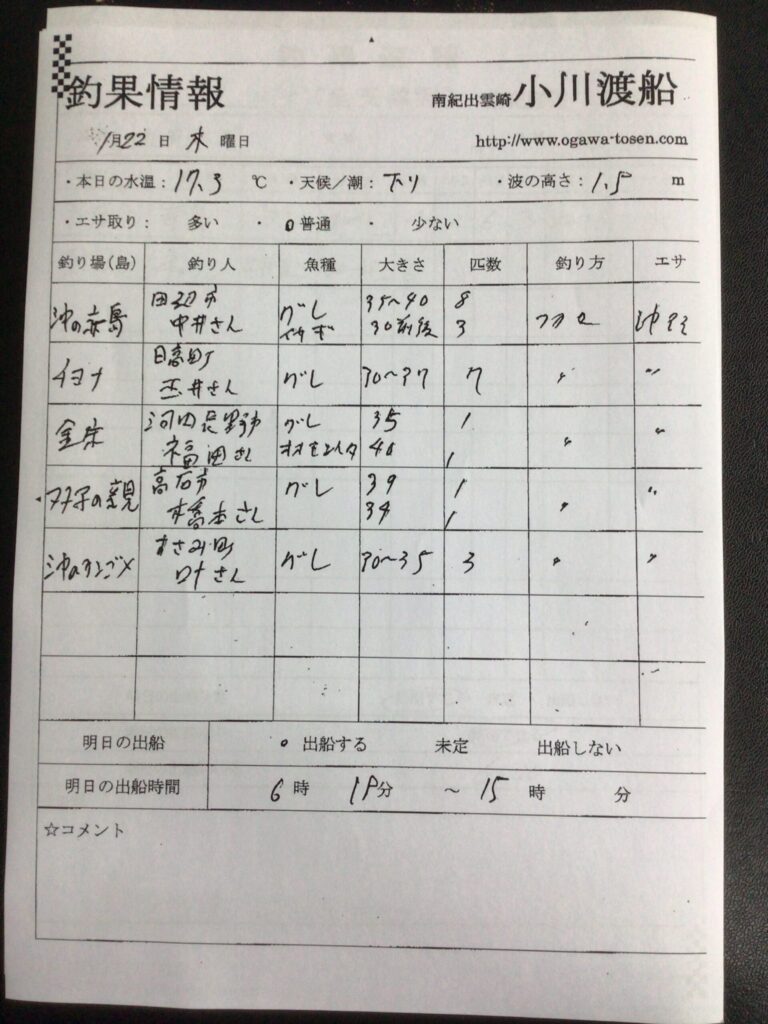 釣果情報
南紀出雲崎小川渡船
1月22日 木曜日
http://www.ogawa-tosen.com
・本日の水温：17.3 ℃ ・天候／潮：下り ・波の高さ：1.5 m
・エサ取り： 多い ・ o普通 ・ 少ない
釣り場（島） 釣り人 魚種 大きさ 匹数 釣り方 エサ
沖の赤島 田辺市 中井さん グレ 35～40 8 フカセ
イサギ 30前後 3
イヨナ 日高町 玉井さん グレ 30～37 7 〃 〃
金床 河内長野市 福田さん グレ 35 1 〃 〃
40 1
双子の親 高石市 橋本さん グレ 39 1 〃 〃
34 1
すさみ町 叶さん グレ 30～35 3 〃 〃
明日の出船 o 出船する 未定 出船しない
明日の出船時間 6時 分 ～ 15時 分
☆コメント